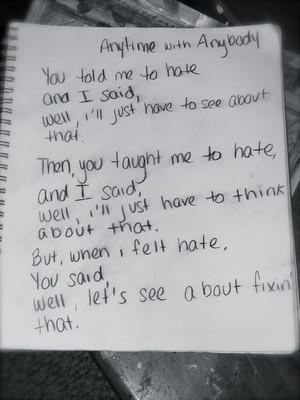 Anytime with Anybody
You told me to hate
and I said,
well, i'll just have to see about
that.
Then, you taught me to hate,
and I said,
well, i'll just have to think
about that.
But, when i felt hate,
You said,
well, let's see about fixin'
that.